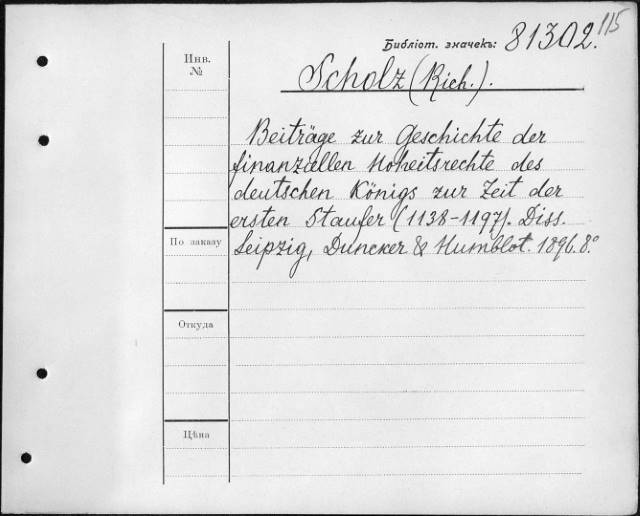 115
Библіот. значекъ: 81302.
Инв.
№
Scholz (Rich.).
Beiträge zur Geschichte der
finanzællen Hoheitsrechte des
deutschen Königs zur Zeit der
ersten Staufer (1138-1197). Diss.
По заказу
Leipzig, Duncker & Humblot. 1896. 8.°
Откуда
Цѣна